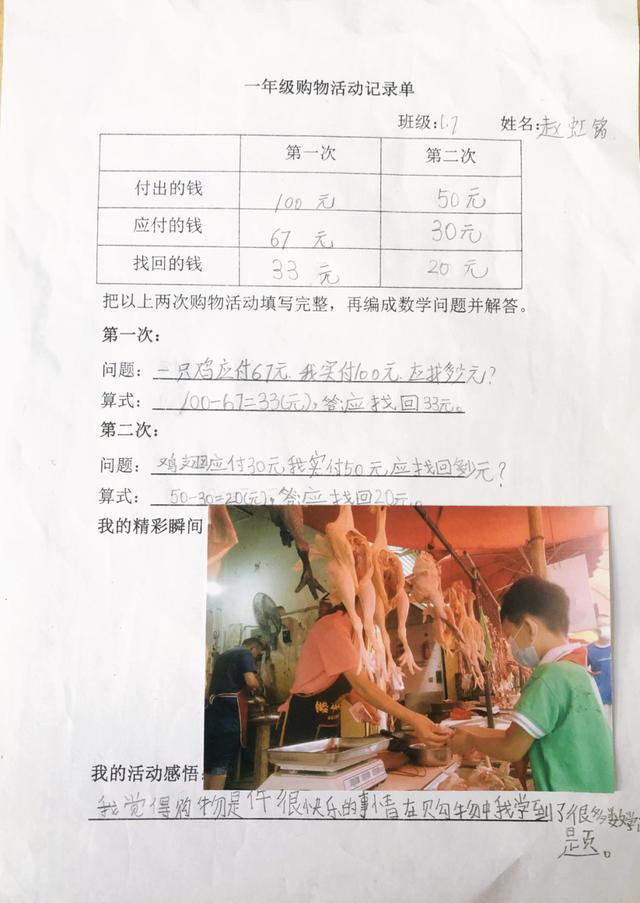 一年级购物活动记录单
班级:1.7 姓名:赵虹铭
第一次 第二次
付出的钱 100元 50元
应付的钱 67元 30元
找回的钱 33元 20元
把以上两次购物活动填写完整，再编成数学问题并解答。
第一次：
问题：一只鸡应付67元.我实付100元.应找多少元?
算式：100-67=33(元),答:应找回33元。
第二次：
问题：鸡翅应付30元,我实付50元,应找回多少元?
算式：50-30=20(元),答:应找回20元。
我的精彩瞬间
我的活动感悟：
我觉得购物是件很快乐的事情在购物中我学到了很多数学
题。